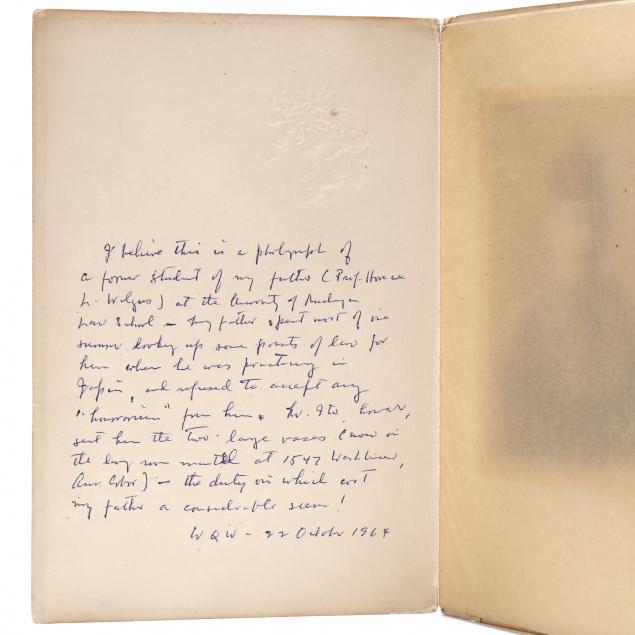 I believe this is a photograph of
a former student of my father (Prof. Horace
L. Wilgus) at the University of Michigan
Law School — My father spent most of one
summer looking up some points of law for
him when he was practicing in
Japan, and refused to accept any
"honorarium" from him. Mr. Ito, however,
sent him the two large vases (now on
the living room mantel at 1547 Washtenaw,
Ann Arbor) — the duty on which cost
my father a considerable sum!
WQW — 22 October 1964